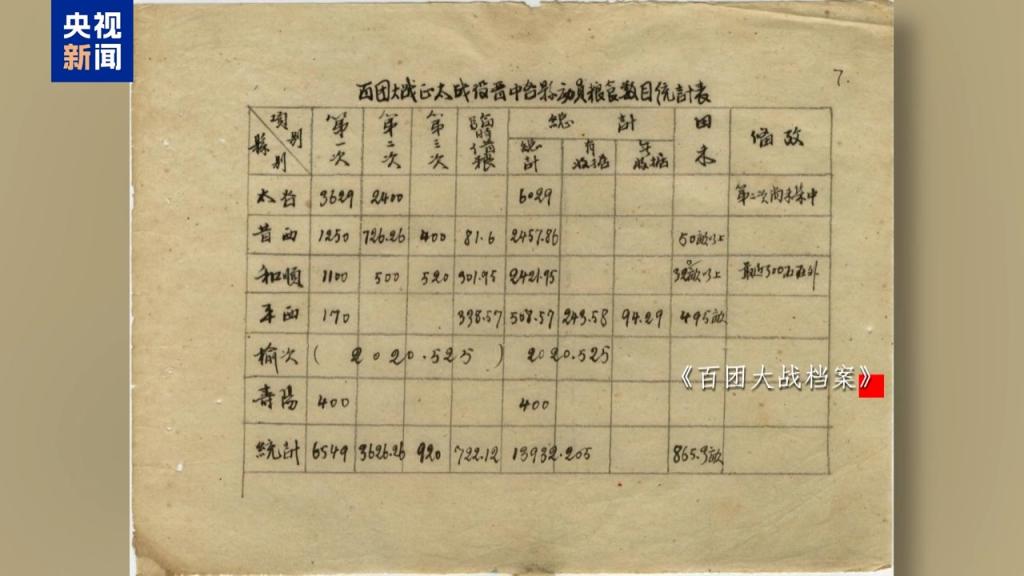 央视
新闻
7.
百团大战正太战役晋中各县动员粮食数目统计表
项别 縣别 第一次 第二次 第三次 临时借粮 總計 田禾 备攷
總計 有收据 無收据
太谷 3629 2400 6029 第二次尚未集中
昔西 1250 726.26 400 81.6 2457.86 50畝以上
和順 1100 500 520 301.95 2421.95 320畝以上
平西 170 338.57 508.57 243.58 94.29 495畝
榆次 (2020.525) 2020.525
《百团大战档案》
壽陽 400 400
統計 6549 3626.26 920 722.12 13932.205 865.3畝